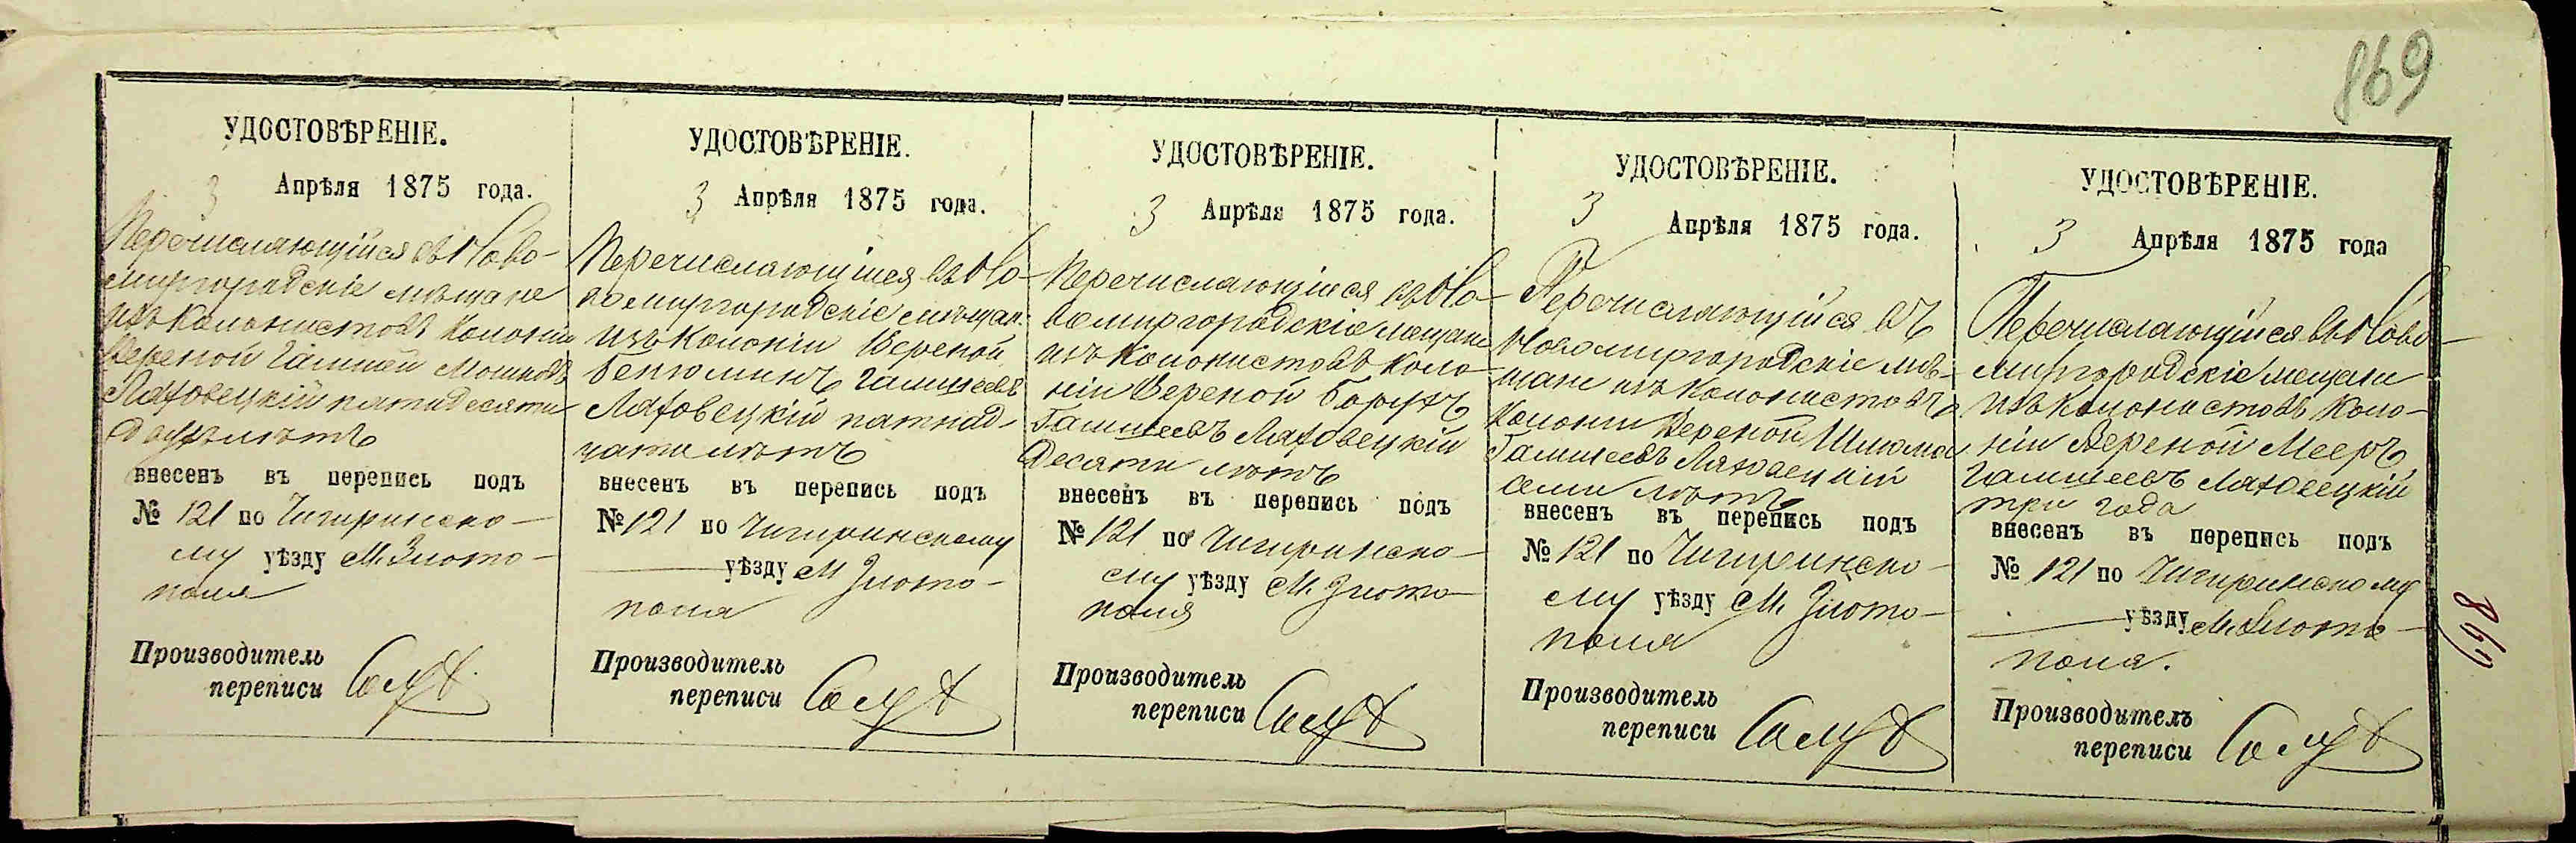 869
УДОСТОВѢРЕНІЕ.
3 Апрѣля 1875 года.
Перечисляющійся въ Ново-
миргородскіе мѣщане
изъ колонистовъ колоніи
Вереной Гамшей Мошковъ
Ляховецкій пятидесяти
двухъ лѣтъ
внесенъ въ перепись подъ
№ 121 по Чигиринско-
му уѣзду М. Злото-
поля
Производитель
переписи
УДОСТОВѢРЕНІЕ.
3 Апрѣля 1875 года.
Перечисляющійся въ Но-
вомиргородскіе мѣщан.
изъ колоніи Вереной
Бенюминъ Гамшеевъ
Ляховецкій пятнад-
цати лѣтъ
внесенъ въ перепись подъ
№ 121 по Чигиринскому
уѣзду М Злото-
поля
Производитель
переписи
УДОСТОВѢРЕНІЕ.
3 Апрѣля 1875 года.
Перечисляющійся въ Но-
вомиргородскіе мещане
изъ колонистовъ коло-
ніи Вереной Борухъ
Гамшеевъ Ляховецкій
десяти лѣтъ
внесенъ въ перепись подъ
№ 121 по Чигиринско-
му уѣзду М. Злото-
поля
Производитель
переписи
УДОСТОВѢРЕНІЕ.
3 Апрѣля 1875 года.
Перечисляющійся въ
Новомиргородскіе мѣ-
щане изъ колонистовъ
колоніи Вереной Шлиома
Гамшеевъ Ляховецкій
семи лѣтъ
внесенъ въ перепись подъ
№ 121 по Чигиринско-
му уѣзду М. Злото-
поля
Производитель
переписи
УДОСТОВѢРЕНІЕ.
3 Апрѣля 1875 года
Перечисляющійся въ Ново-
миргородскіе мещане
изъ колонистовъ коло-
ніи Вереной Мееръ
Гамшеевъ Ляховецкій
три года
внесенъ въ перепись подъ
№ 121 по Чигиринскому
уѣзду М. Злото-
поля.
Производитель
переписи
869